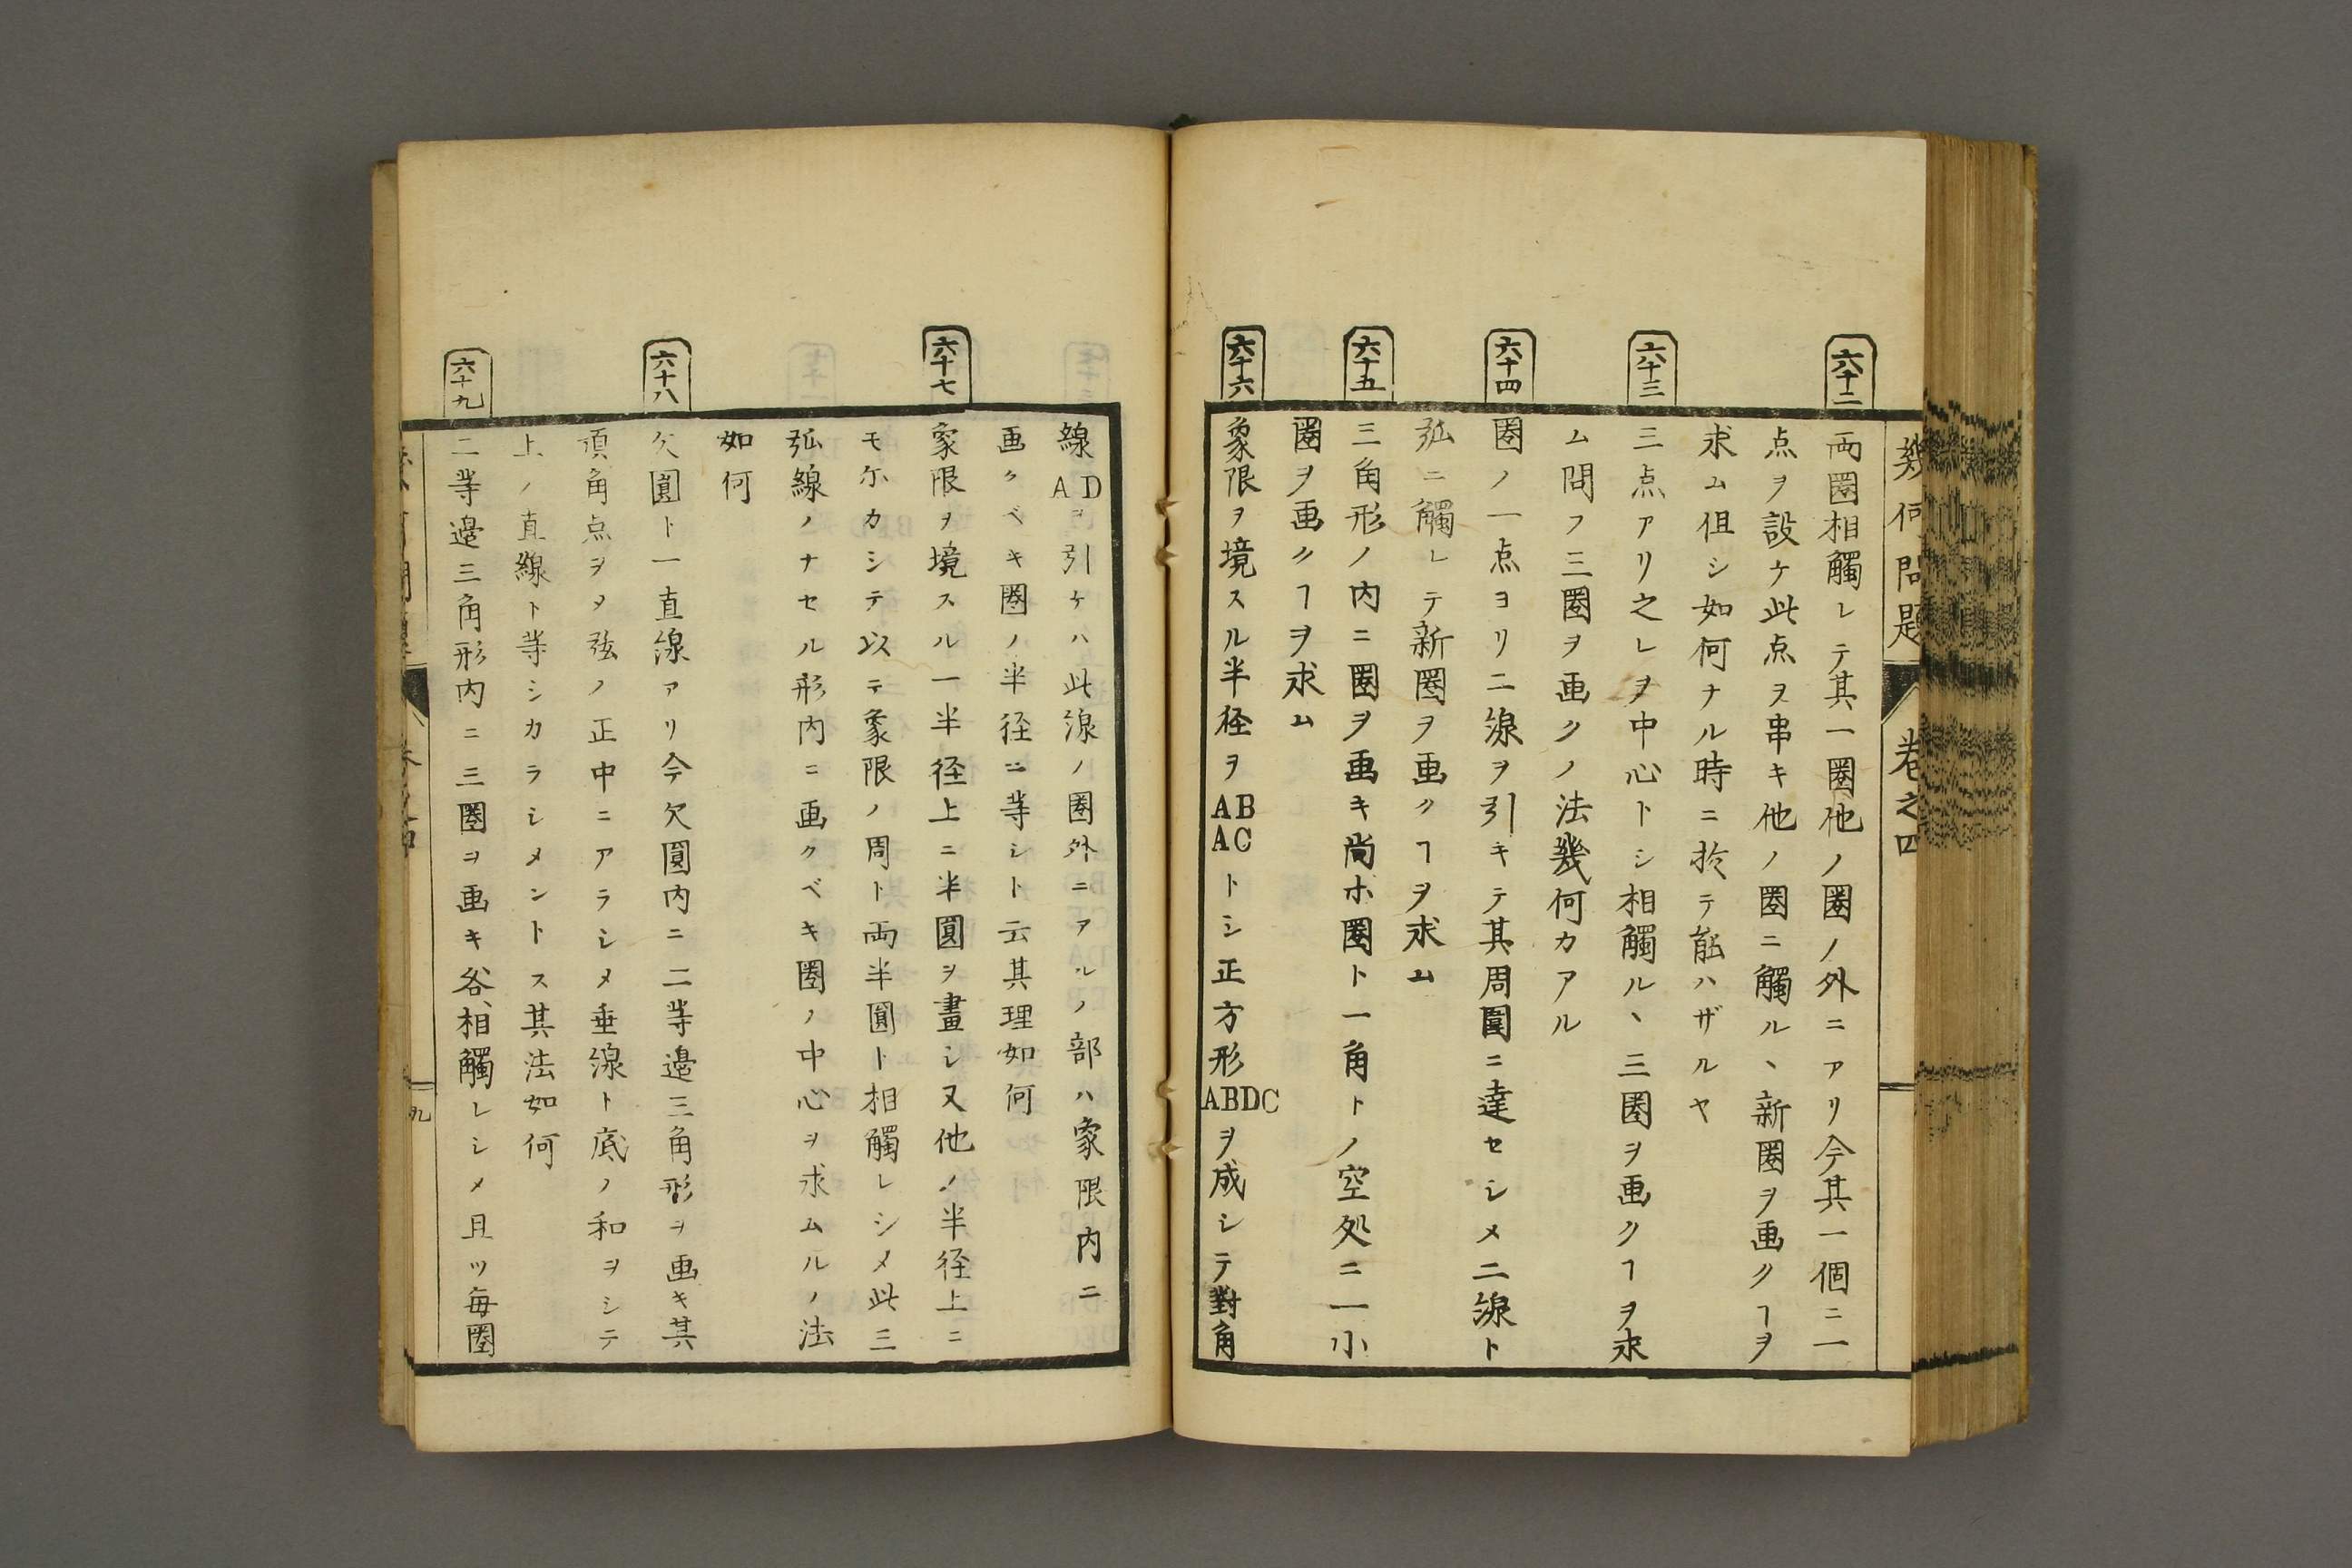 幾何問題
巻之四
六十二
両圏相觸レテ其一圏他ノ圏ノ外ニアリ今其一個ニ一
点ヲ設ケ此点ヲ串キ他ノ圏ニ觸ルヽ新圏ヲ画クヿヲ
求ム但シ如何ナル時ニ於テ能ハザルヤ
六十三
三点アリ之レヲ中心トシ相觸ルヽ三圏ヲ画クヿヲ求
ム問フ三圏ヲ画クノ法幾何カアル
六十四
圏ノ一点ヨリ二線ヲ引キテ其周圍ニ達セシメ二線ト
弧ニ觸レテ新圏ヲ画クヿヲ求ム
六十五
三角形ノ内ニ圏ヲ画キ尚ホ圏ト一角トノ空処ニ一小
圏ヲ画クヿヲ求ム
六十六
象限ヲ境スル半径ヲAB ACトシ正方形ABDCヲ成シテ對角
線ADヲ引ケハ此線ノ圏外ニアルノ部ハ象限内ニ
画クベキ圏ノ半径ニ等シト云其理如何
六十七
象限ヲ境スル一半径上ニ半圓ヲ畫シ又他ノ半径上ニ
モ尓カシテ以テ象限ノ周ト両半圓ト相觸レシメ此三
弧線ノナセル形内ニ画クベキ圏ノ中心ヲ求ムルノ法
如何
六十八
欠圓ト一直線アリ今欠圓内ニ二等邉三角形ヲ画キ其
頂角点ヲメ弦ノ正中ニアラシメ垂線ト底ノ和ヲシテ
上ノ直線ト等シカラシメントス其法如何
六十九
二等邉三角形内ニ三圏ヲ画キ各相觸レシメ且ツ毎圏
九